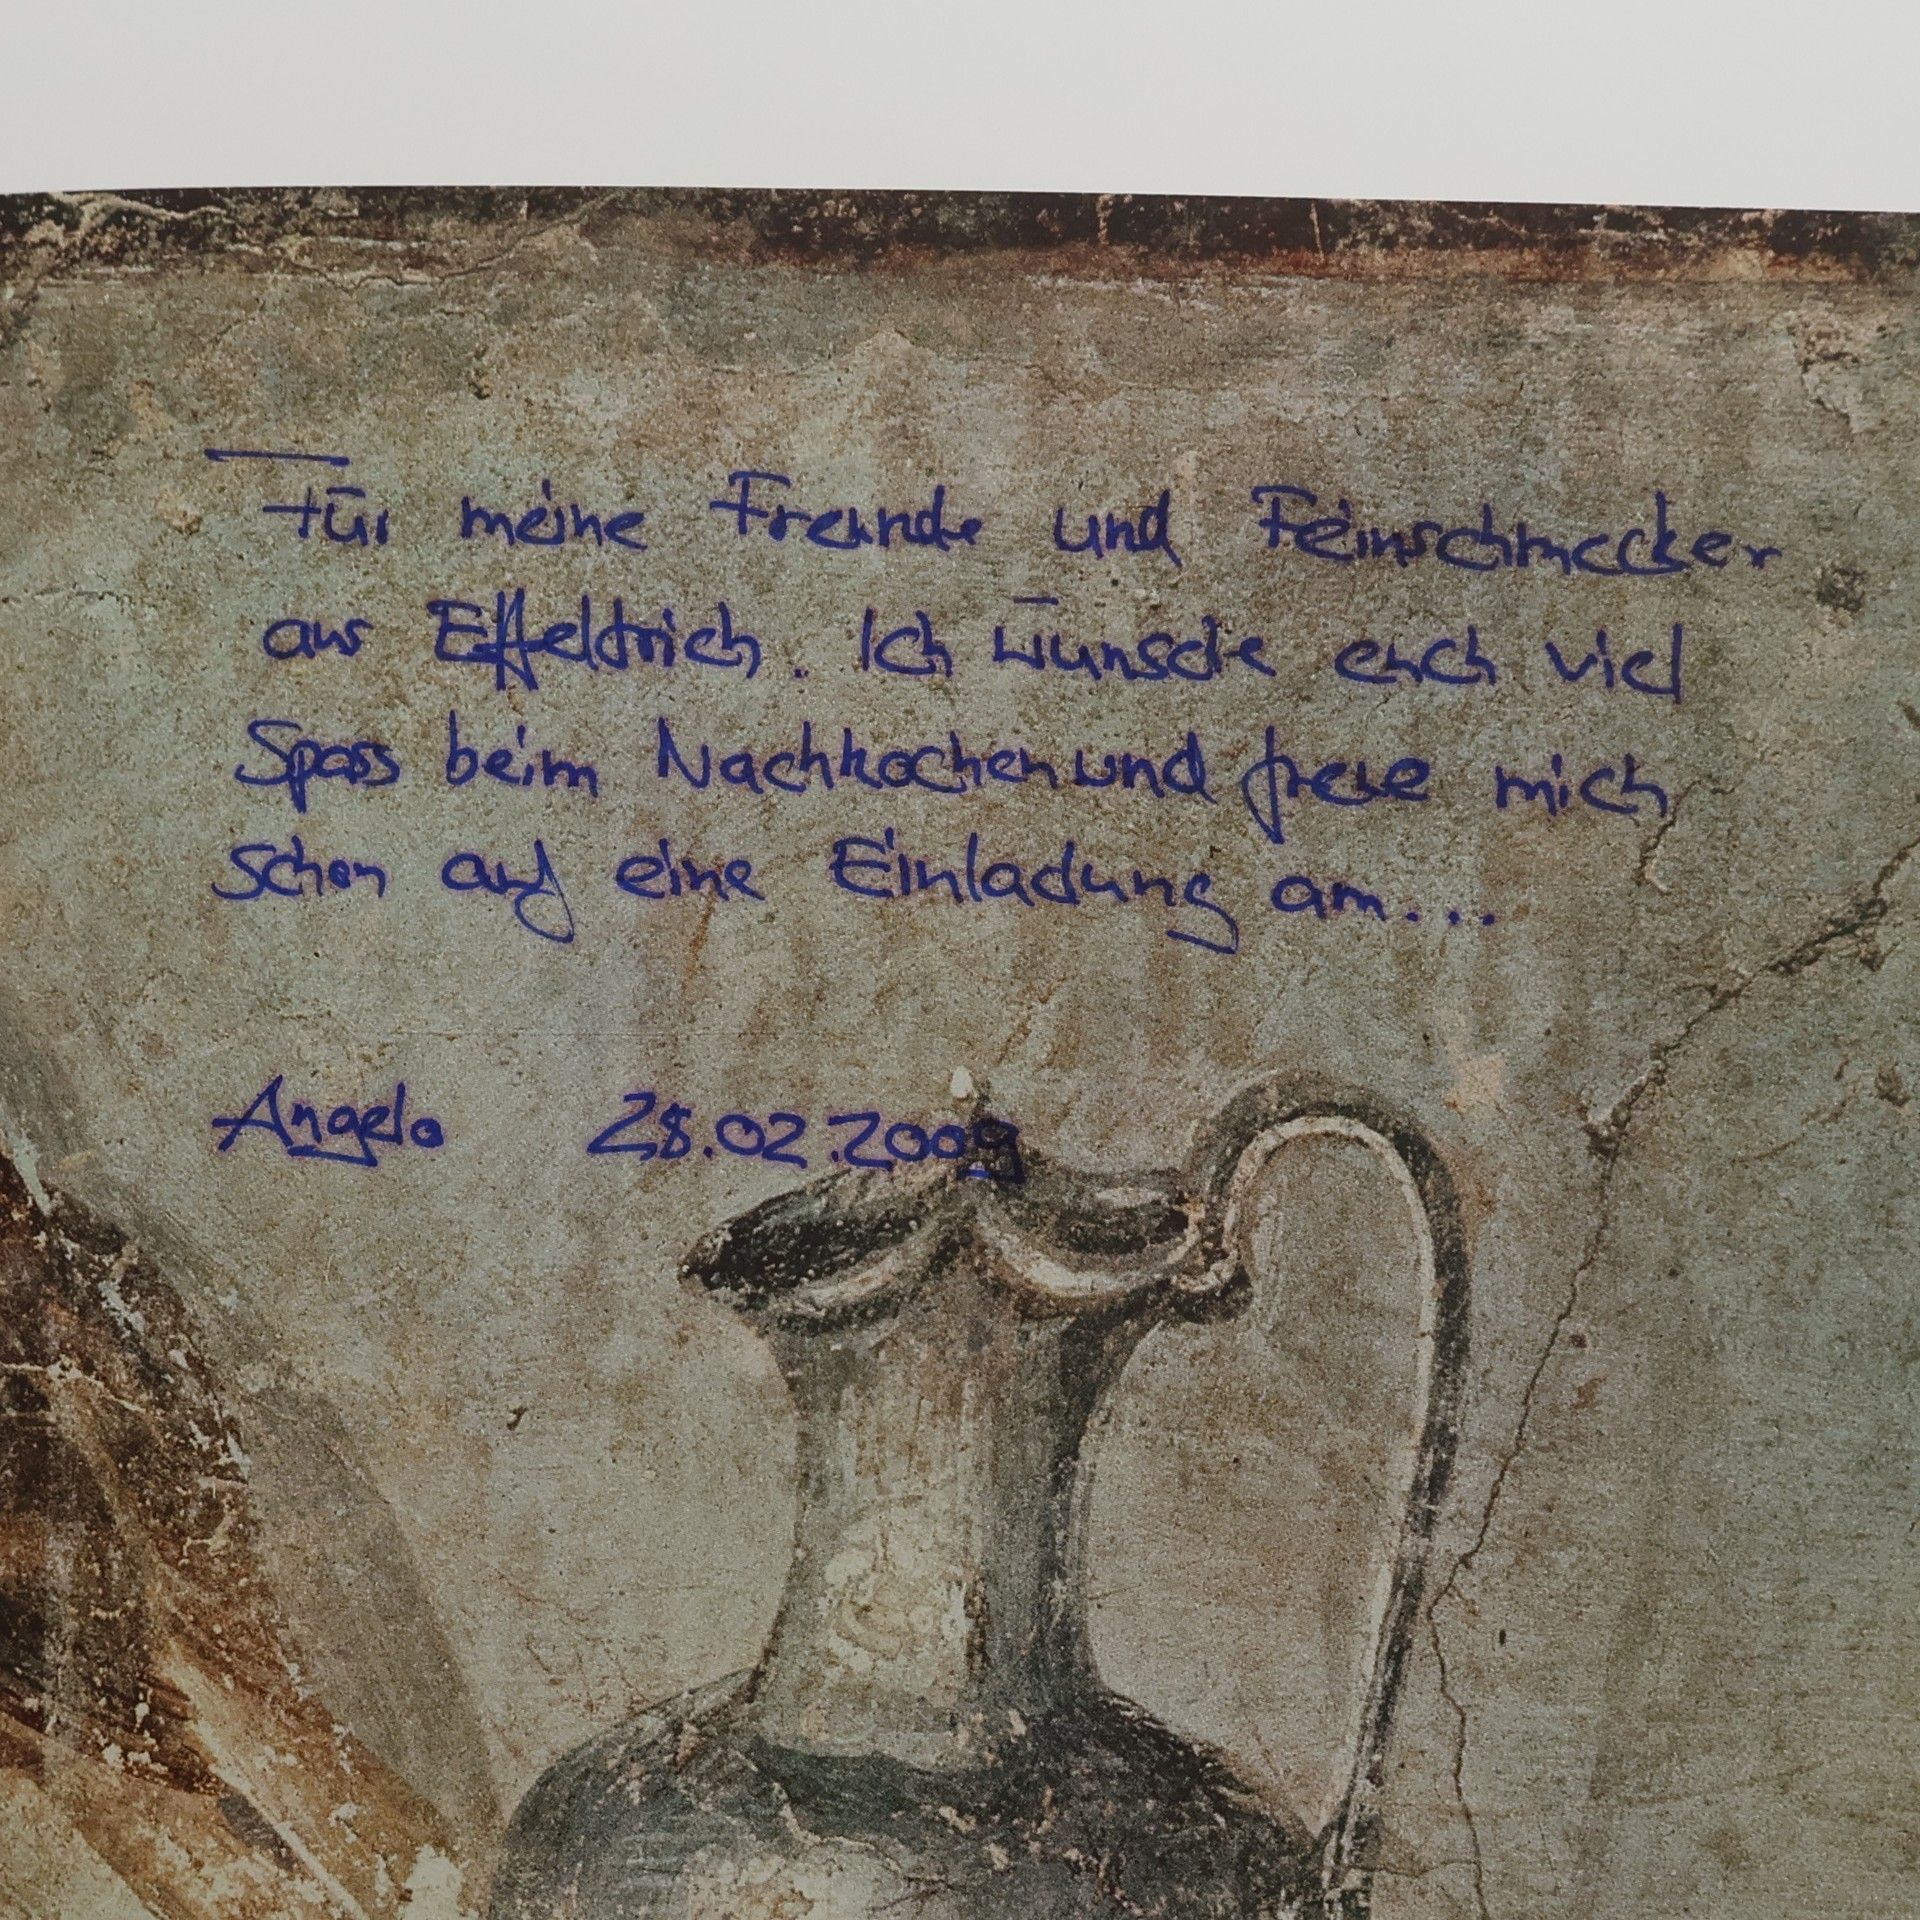 Für meine Freunde und Feinschmecker
aus Effeltrich. Ich wünsche euch viel
Spass beim Nachkochen und freue mich
schon auf eine Einladung am...
Angelo 28.02.2009